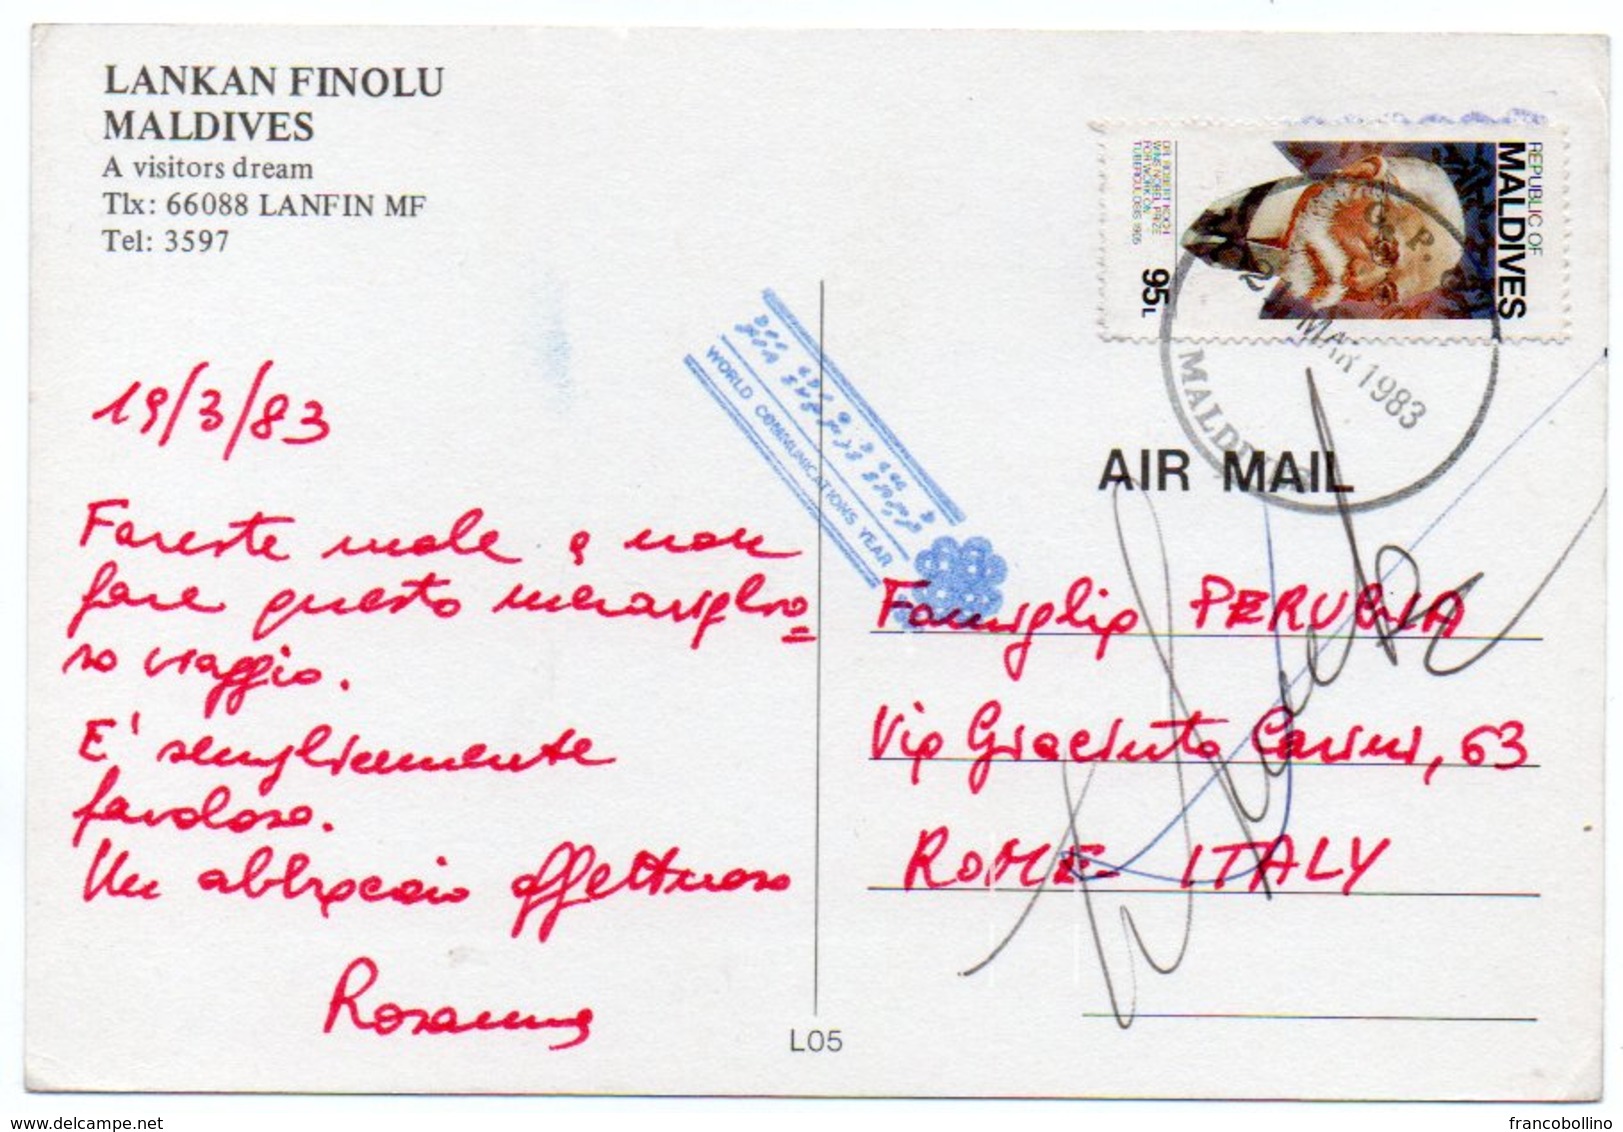 LANKAN FINOLU
MALDIVES
A visitors dream
Tlx: 66088 LANFIN MF
Tel: 3597
19/3/83
Fareste male a non
fare questo meraviglio=
so viaggio.
E' semplicemente
favoloso.
Un abbraccio affettuoso
Rosanna
WORLD COMMUNICATIONS YEAR
REPUBLIC OF
MALDIVES
DR. ROBERT KOCH
WINS NOBEL PRIZE
FOR WORK ON
TUBERCULOSIS 1905
95L
MAR 1983
MALDIVES
AIR MAIL
Famiglia PERUGIA
Via Giacinto Carini, 63
ROME ITALY
L05
delcampe.net
francobollino